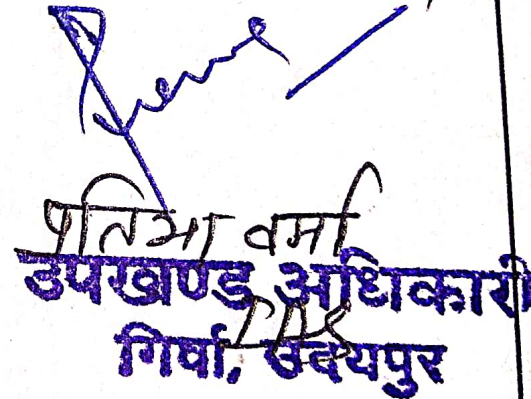 प्रतिभा वर्मा
उपखण्ड अधिकारी
IAS
गिर्वा, उदयपुर